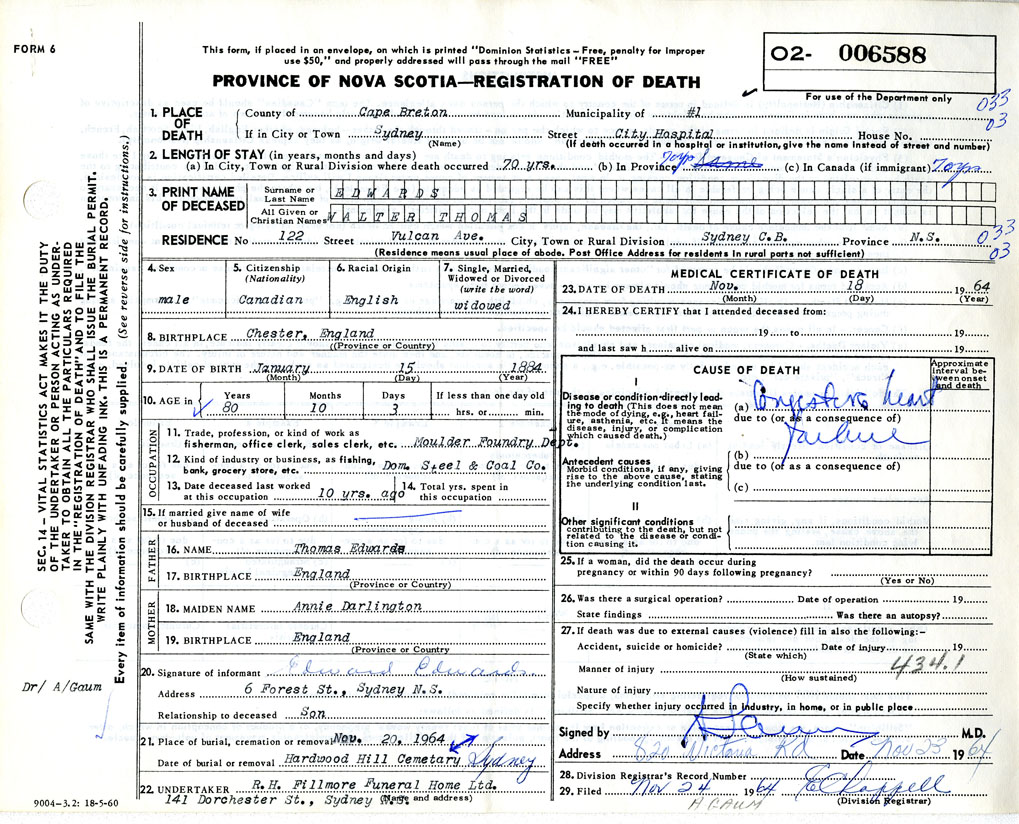 FORM 6
This form, if placed in an envelope, on which is printed "Dominion Statistics – Free, penalty for improper
use $50," and properly addressed will pass through the mail "FREE"
PROVINCE OF NOVA SCOTIA—REGISTRATION OF DEATH
02- 006588
For use of the Department only
033
03
1. PLACE OF DEATH
County of Cape Breton Municipality of #1
If in City or Town Sydney Street City Hospital House No.
(Name) (If death occurred in a hospital or institution, give the name instead of street and number)
2. LENGTH OF STAY (in years, months and days)
(a) In City, Town or Rural Division where death occurred 70 yrs. (b) In Province 70yrs Same (c) In Canada (if immigrant) 70yrs
3. PRINT NAME OF DECEASED
Surname or Last Name EDWARDS
All Given or Christian Names WALTER THOMAS
RESIDENCE No 122 Street Vulcan Ave. City, Town or Rural Division Sydney C.B. Province N.S.
033
03
(Residence means usual place of abode. Post Office Address for residents in rural parts not sufficient)
4. Sex
male
5. Citizenship
(Nationality)
Canadian
6. Racial Origin
English
7. Single, Married,
Widowed or Divorced
(write the word)
widowed
8. BIRTHPLACE Chester, England
(Province or Country)
9. DATE OF BIRTH January 15 1884
(Month) (Day) (Year)
10. AGE in
Years Months Days If less than one day old
80 10 3 hrs. or min.
OCCUPATION
11. Trade, profession, or kind of work as
fisherman, office clerk, sales clerk, etc. Moulder Foundry Dept.
12. Kind of industry or business, as fishing,
bank, grocery store, etc. Dom. Steel & Coal Co.
13. Date deceased last worked
at this occupation 10 yrs. ago
14. Total yrs. spent in
this occupation
15. If married give name of wife
or husband of deceased
FATHER
16. NAME Thomas Edwards
17. BIRTHPLACE England
(Province or Country)
MOTHER
18. MAIDEN NAME Annie Darlington
19. BIRTHPLACE England
(Province or Country
20. Signature of informant Edward Edwards
Address 6 Forest St., Sydney N.S.
Relationship to deceased Son
21. Place of burial, cremation or removal Nov. 20, 1964
Date of burial or removal Hardwood Hill Cemetary Sydney
22. UNDERTAKER R.H. Fillmore Funeral Home Ltd.
141 Dorchester St., Sydney N.S.
(Name and address)
MEDICAL CERTIFICATE OF DEATH
23. DATE OF DEATH Nov. 18 1964
(Month) (Day) (Year)
24. I HEREBY CERTIFY that I attended deceased from:
19 to 19
and last saw h alive on 19
CAUSE OF DEATH
Approximate
interval be-
tween onset
and death
I
Disease or condition directly lead-
ing to death (This does not mean
the mode of dying, e.g., heart fail-
ure, asthenia, etc. It means the
disease, injury, or complication
which caused death.)
(a) Congestive heart
due to (or as a consequence of)
failure
Antecedent causes
Morbid conditions, if any, giving
rise to the above cause, stating
the underlying condition last.
(b)
due to (or as a consequence of)
(c)
II
Other significant conditions
contributing to the death, but not
related to the disease or condi-
tion causing it.
25. If a woman, did the death occur during
pregnancy or within 90 days following pregnancy?
(Yes or No)
26. Was there a surgical operation? Date of operation 19
State findings Was there an autopsy?
27. If death was due to external causes (violence) fill in also the following:–
Accident, suicide or homicide? Date of injury 19
(State which)
Manner of injury 434.1
(How sustained)
Nature of injury
Specify whether injury occurred in Industry, in home, or in public place
Signed by A Gaum M.D.
Address 820 Victoria Rd Date Nov 23 1964
28. Division Registrar's Record Number
29. Filed Nov 24 1964 E Chappell
A GAUM (Division Registrar)
SEC. 14 – VITAL STATISTICS ACT MAKES IT THE DUTY
OF THE UNDERTAKER OR PERSON ACTING AS UNDER-
TAKER TO OBTAIN ALL THE PARTICULARS REQUIRED
IN THE "REGISTRATION OF DEATH" AND TO FILE THE
SAME WITH THE DIVISION REGISTRAR WHO SHALL ISSUE THE BURIAL PERMIT.
WRITE PLAINLY WITH UNFADING INK. THIS IS A PERMANENT RECORD.
Every item of information should be carefully supplied. (See reverse side for instructions.)
Dr/ A/Gaum
9004–3.2: 18-5-60